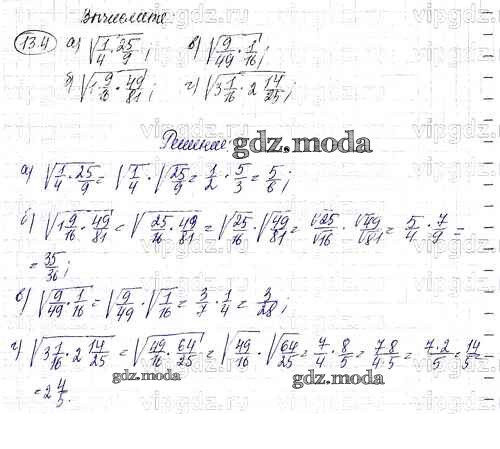 Вычислите:
13.4 а) √(1/4 · 25/9); в) √(9/49 · 1/16);
б) √(1 9/16 · 49/81); г) √(3 1/16 · 2 14/25);
Решение:
gdz.moda
а) √(1/4 · 25/9) = √(1/4) · √(25/9) = 1/2 · 5/3 = 5/6;
б) √(1 9/16 · 49/81) = √(25/16 · 49/81) = √(25/16) · √(49/81) = √25/√16 · √49/√81 = 5/4 · 7/9 =
= 35/36;
в) √(9/49 · 1/16) = √(9/49) · √(1/16) = 3/7 · 1/4 = 3/28;
г) √(3 1/16 · 2 14/25) = √(49/16 · 64/25) = √(49/16) · √(64/25) = 7/4 · 8/5 = 7·8/4·5 = 7·2/5 = 14/5
gdz.moda
gdz.moda
= 2 4/5.